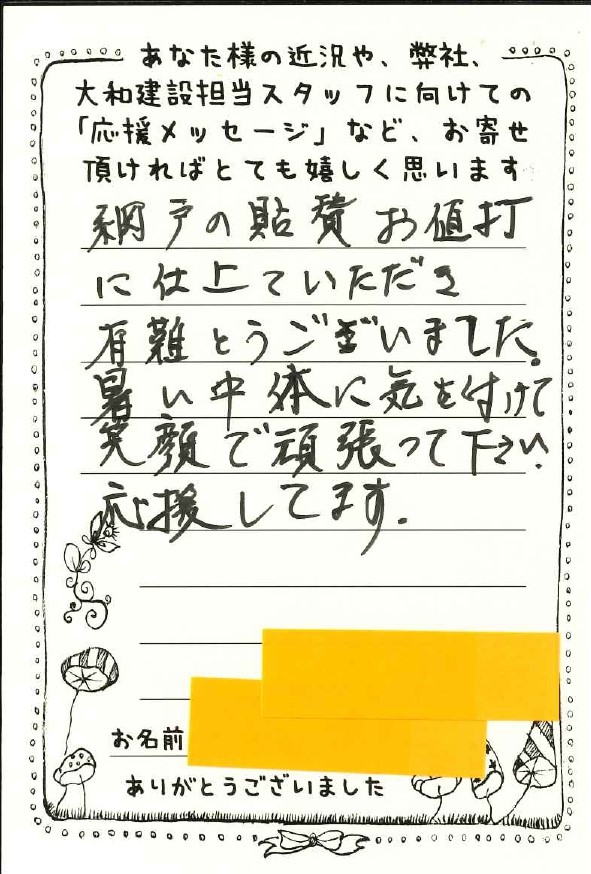 あなた様の近況や、弊社、
大和建設担当スタッフに向けての
「応援メッセージ」など、お寄せ
頂ければとても嬉しく思います
網戸の貼賛お値打
に仕上ていただき
有難とうございました。
暑い中体に気を付けて
笑顔で頑張って下さい。
応援してます.
お名前
ありがとうございました